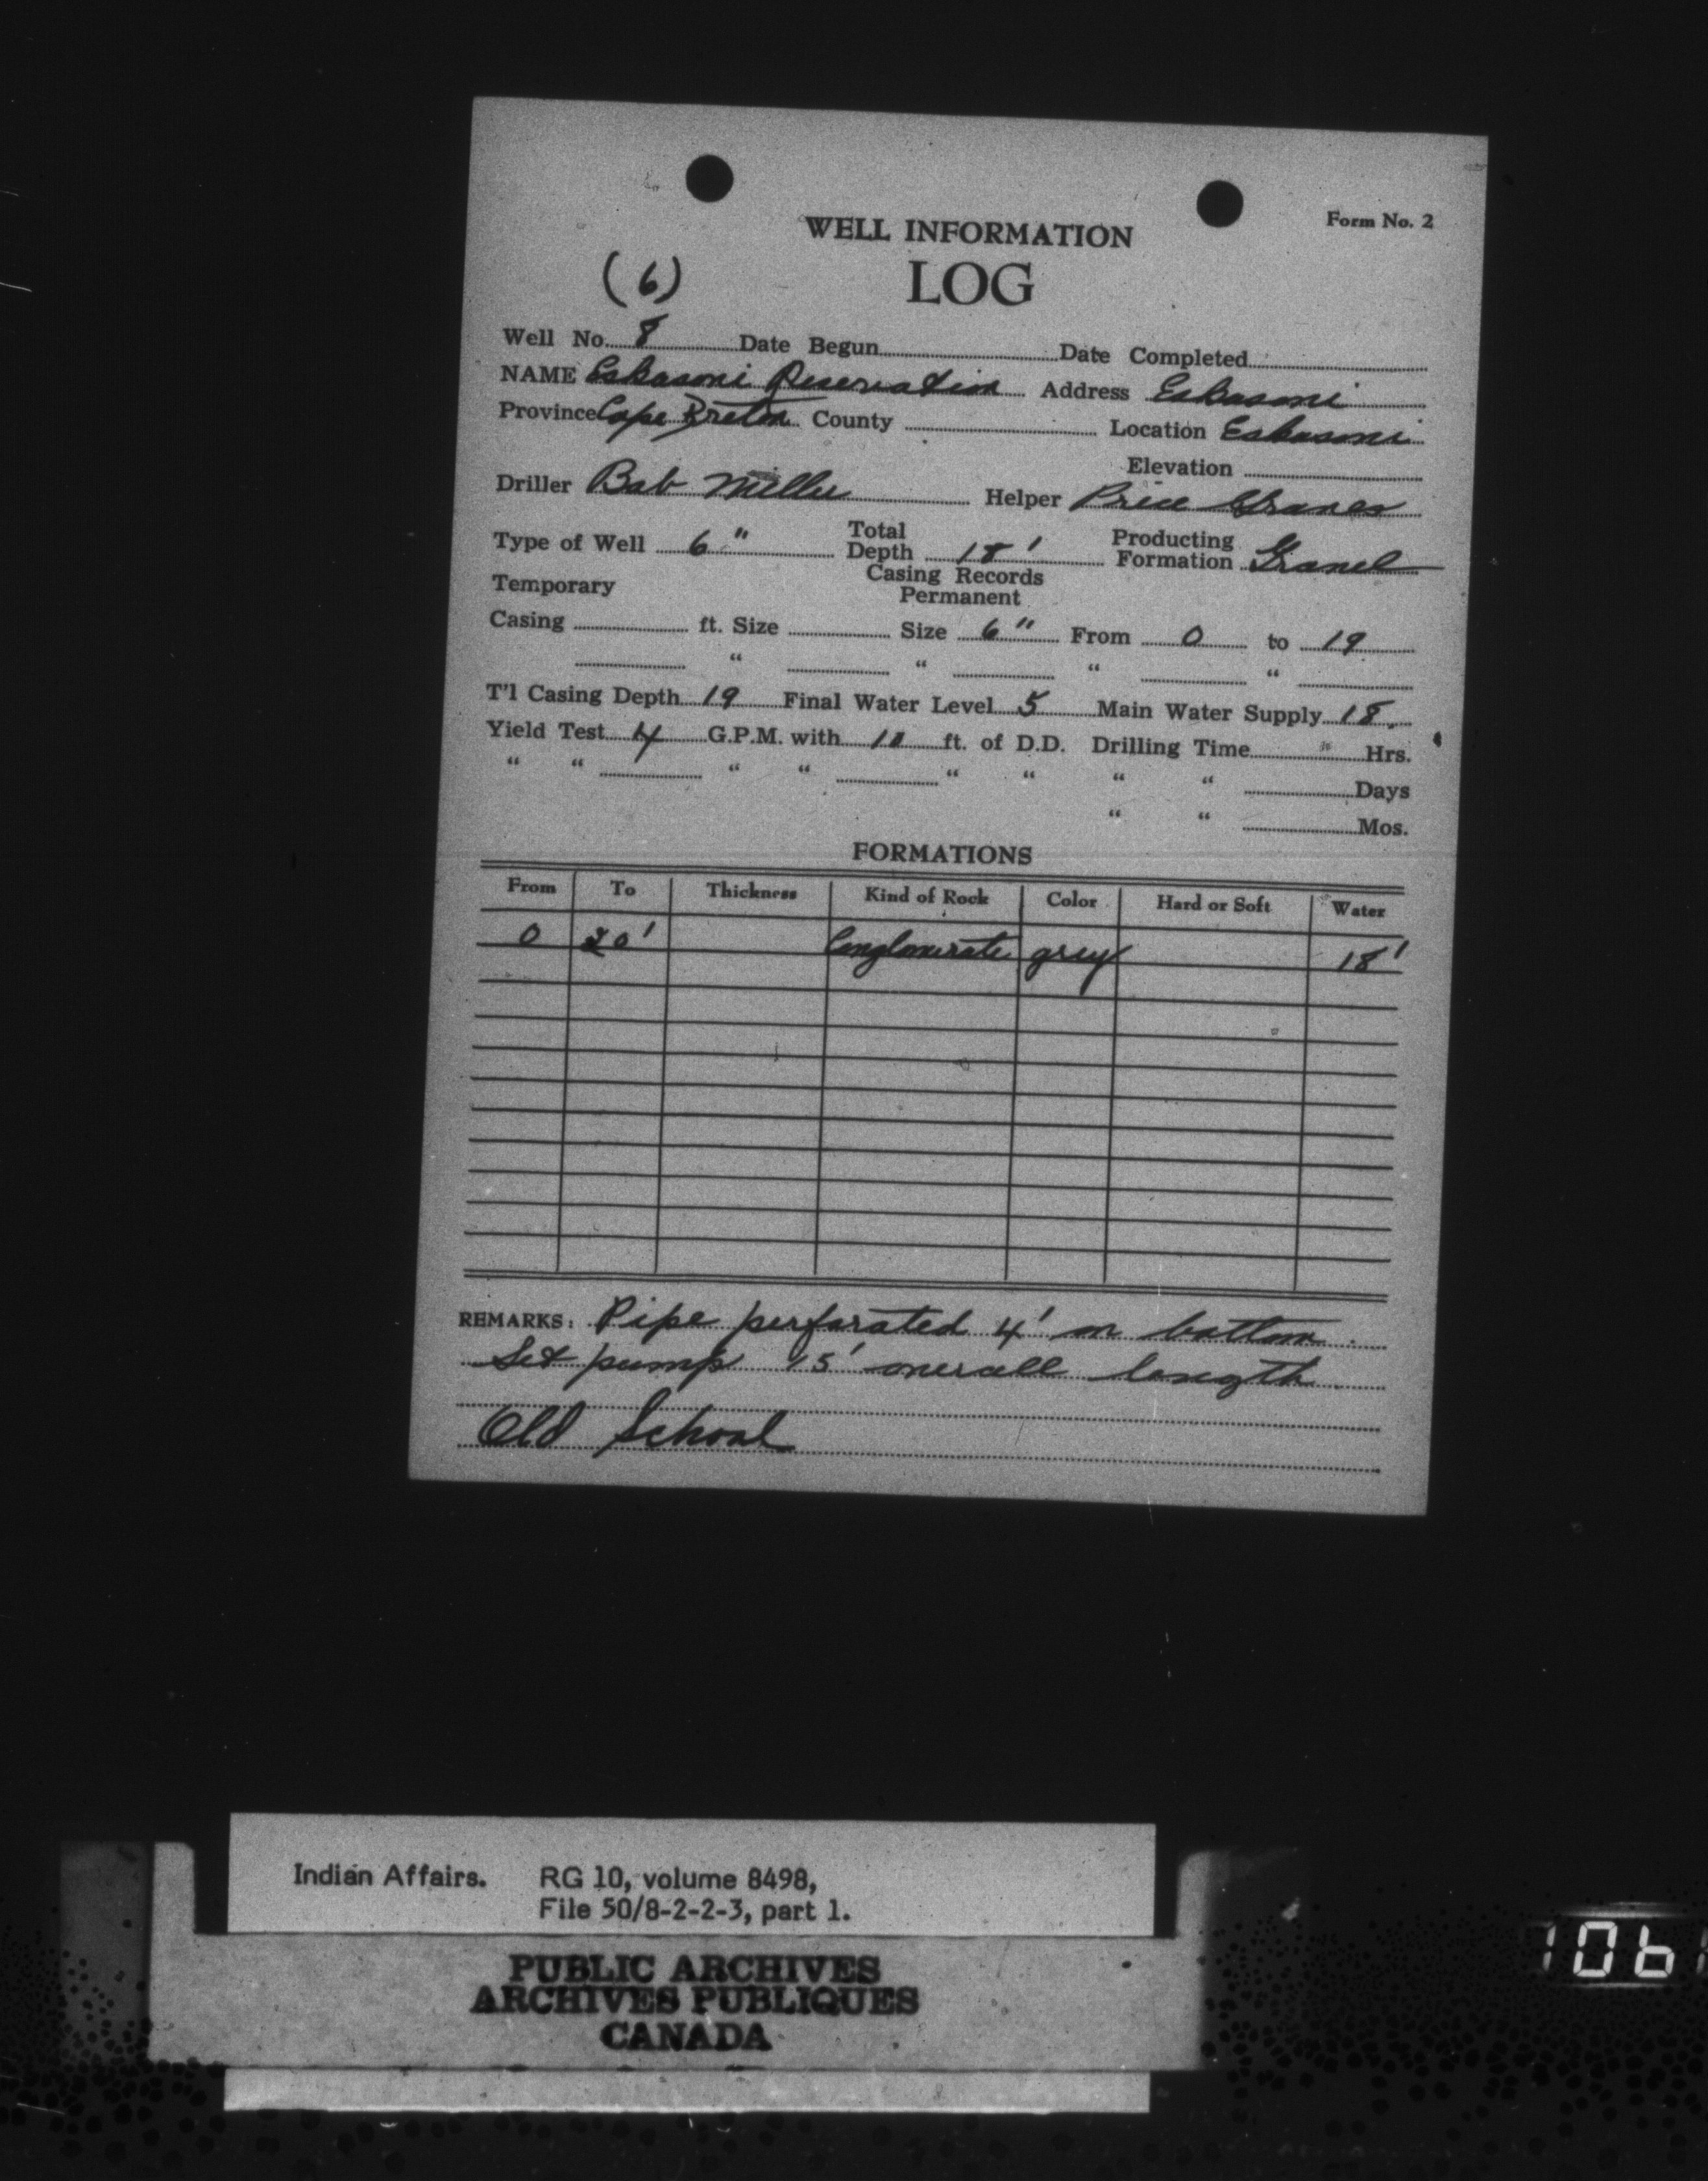 Form No. 2
WELL INFORMATION
(6) LOG
Well No. 8 Date Begun Date Completed
NAME Eskasoni Reservation Address Eskasoni
Province Cape Breton County Location Eskasoni
Elevation
Driller Bab Miller Helper Price
Type of Well 6" Total Depth 18' Producing Formation Gravel
Temporary Casing Records
Permanent
Casing ft. Size Size 6" From 0 to 19
" " " "
T'l Casing Depth 19 Final Water Level 5 Main Water Supply 18.
Yield Test 4 G.P.M. with 10 ft. of D.D. Drilling Time Hrs.
" " " " " " " " Days
" " Mos.
FORMATIONS
From To Thickness Kind of Rock Color Hard or Soft Water
0 20' Conglomerate grey 18'
REMARKS: Pipe perforated 4' on bottom.
Set pump 15' overall length
Old School
Indian Affairs. RG 10, volume 8498,
File 50/8-2-2-3, part 1.
PUBLIC ARCHIVES
ARCHIVES PUBLIQUES
CANADA